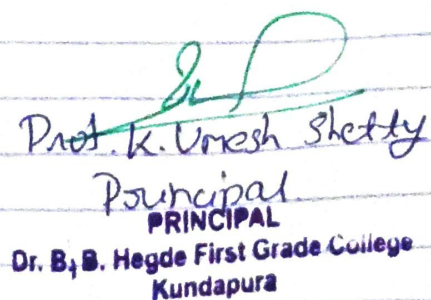 Prof. K. Umesh Shetty
Principal
PRINCIPAL
Dr. B. B. Hegde First Grade College
Kundapura